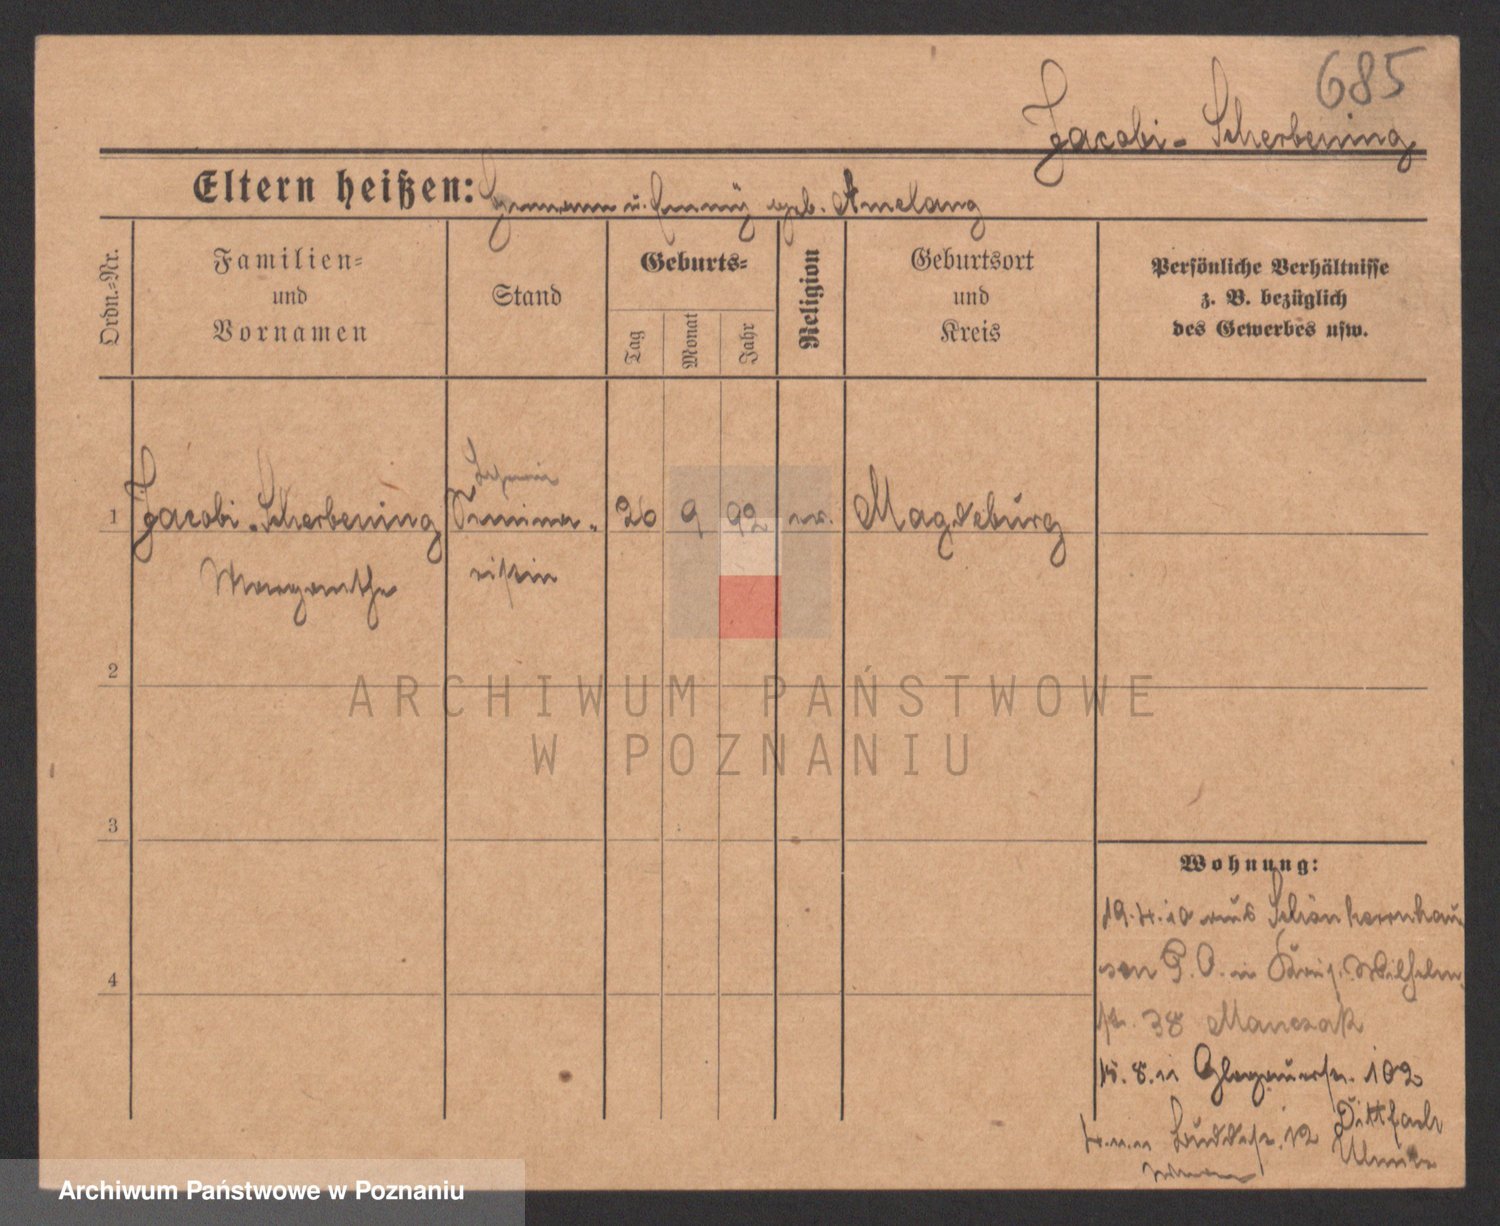 685
Jacobi-Scherbening
Eltern heißen: Hermann u. Fanny geb. Amelang
Ordn.-Nr.
Familien-
und
Vornamen
Stand
Geburts-
Tag
Monat
Jahr
Religion
Geburtsort
und
Kreis
Persönliche Verhältnisse
z. B. bezüglich
des Gewerbes usw.
1 Jacobi-Scherbening Seminar- 26 9 92 ev. Magdeburg
Margarethe ristin
2
3
4
Wohnung:
19.4.10 aus Schönherrnhau-
sen P.O. in König. Wilhelm-
str. 38 Manczak
8.11 Glogauerstr. 102
Dittfach
12
ARCHIWUM PAŃSTWOWE
W POZNANIU
Archiwum Państwowe w Poznaniu